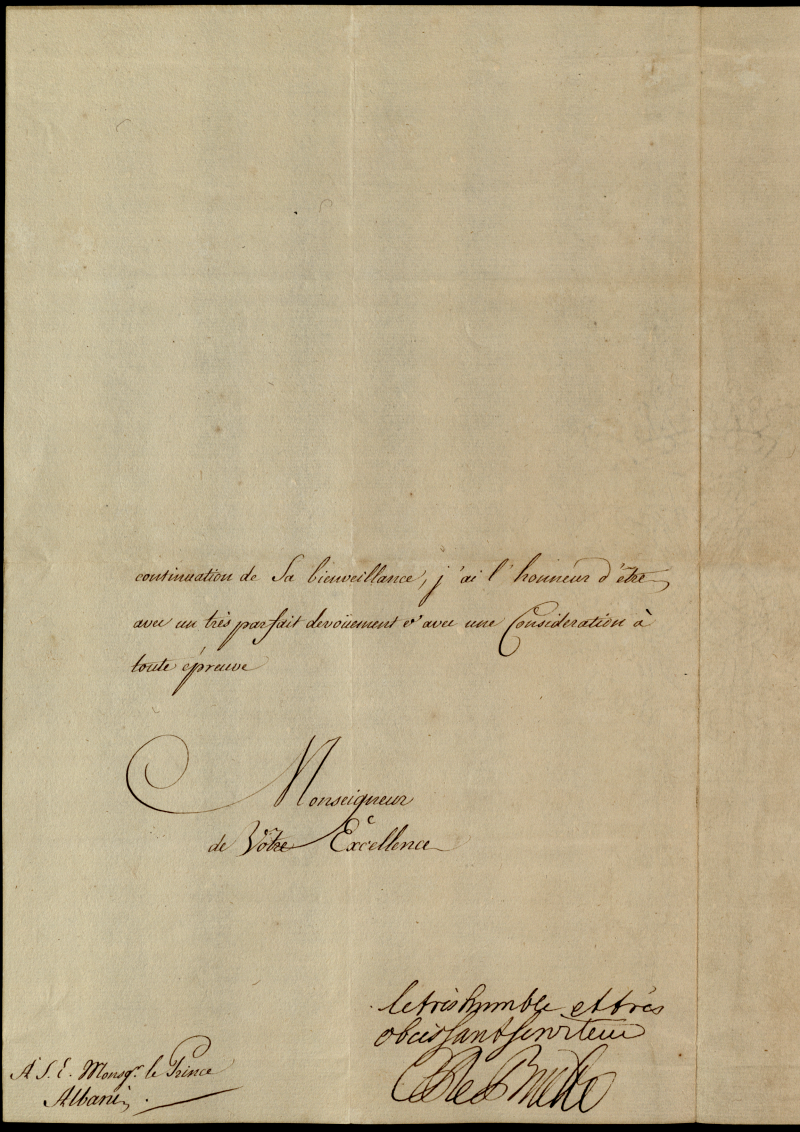 continuation de Sa bienveillance, j'ai l'honneur d'être
avec un très parfait devoüement & avec une Consideration à
toute épreuve
Monseigneur
de Vôtre Excellence
le très humble et très
obeissant serviteur
A S. E. Monsgr. le Prince
Albani.